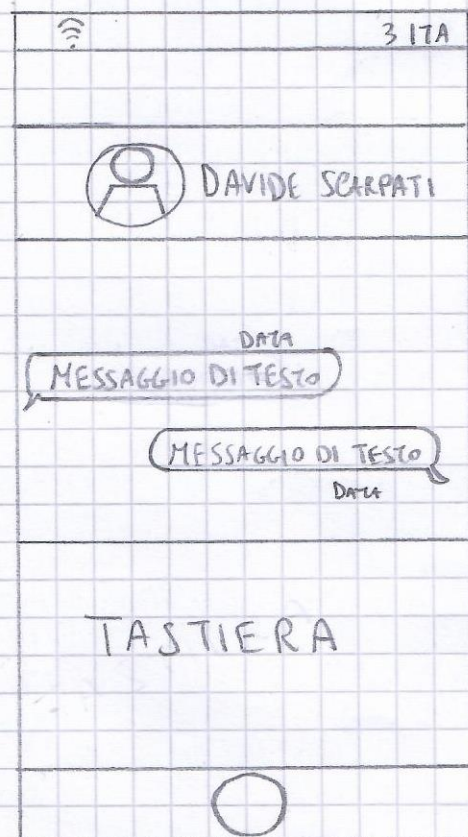 3 ITA
DAVIDE SCARPATI
DATA
MESSAGGIO DI TESTO
MESSAGGIO DI TESTO
DATA
TASTIERA